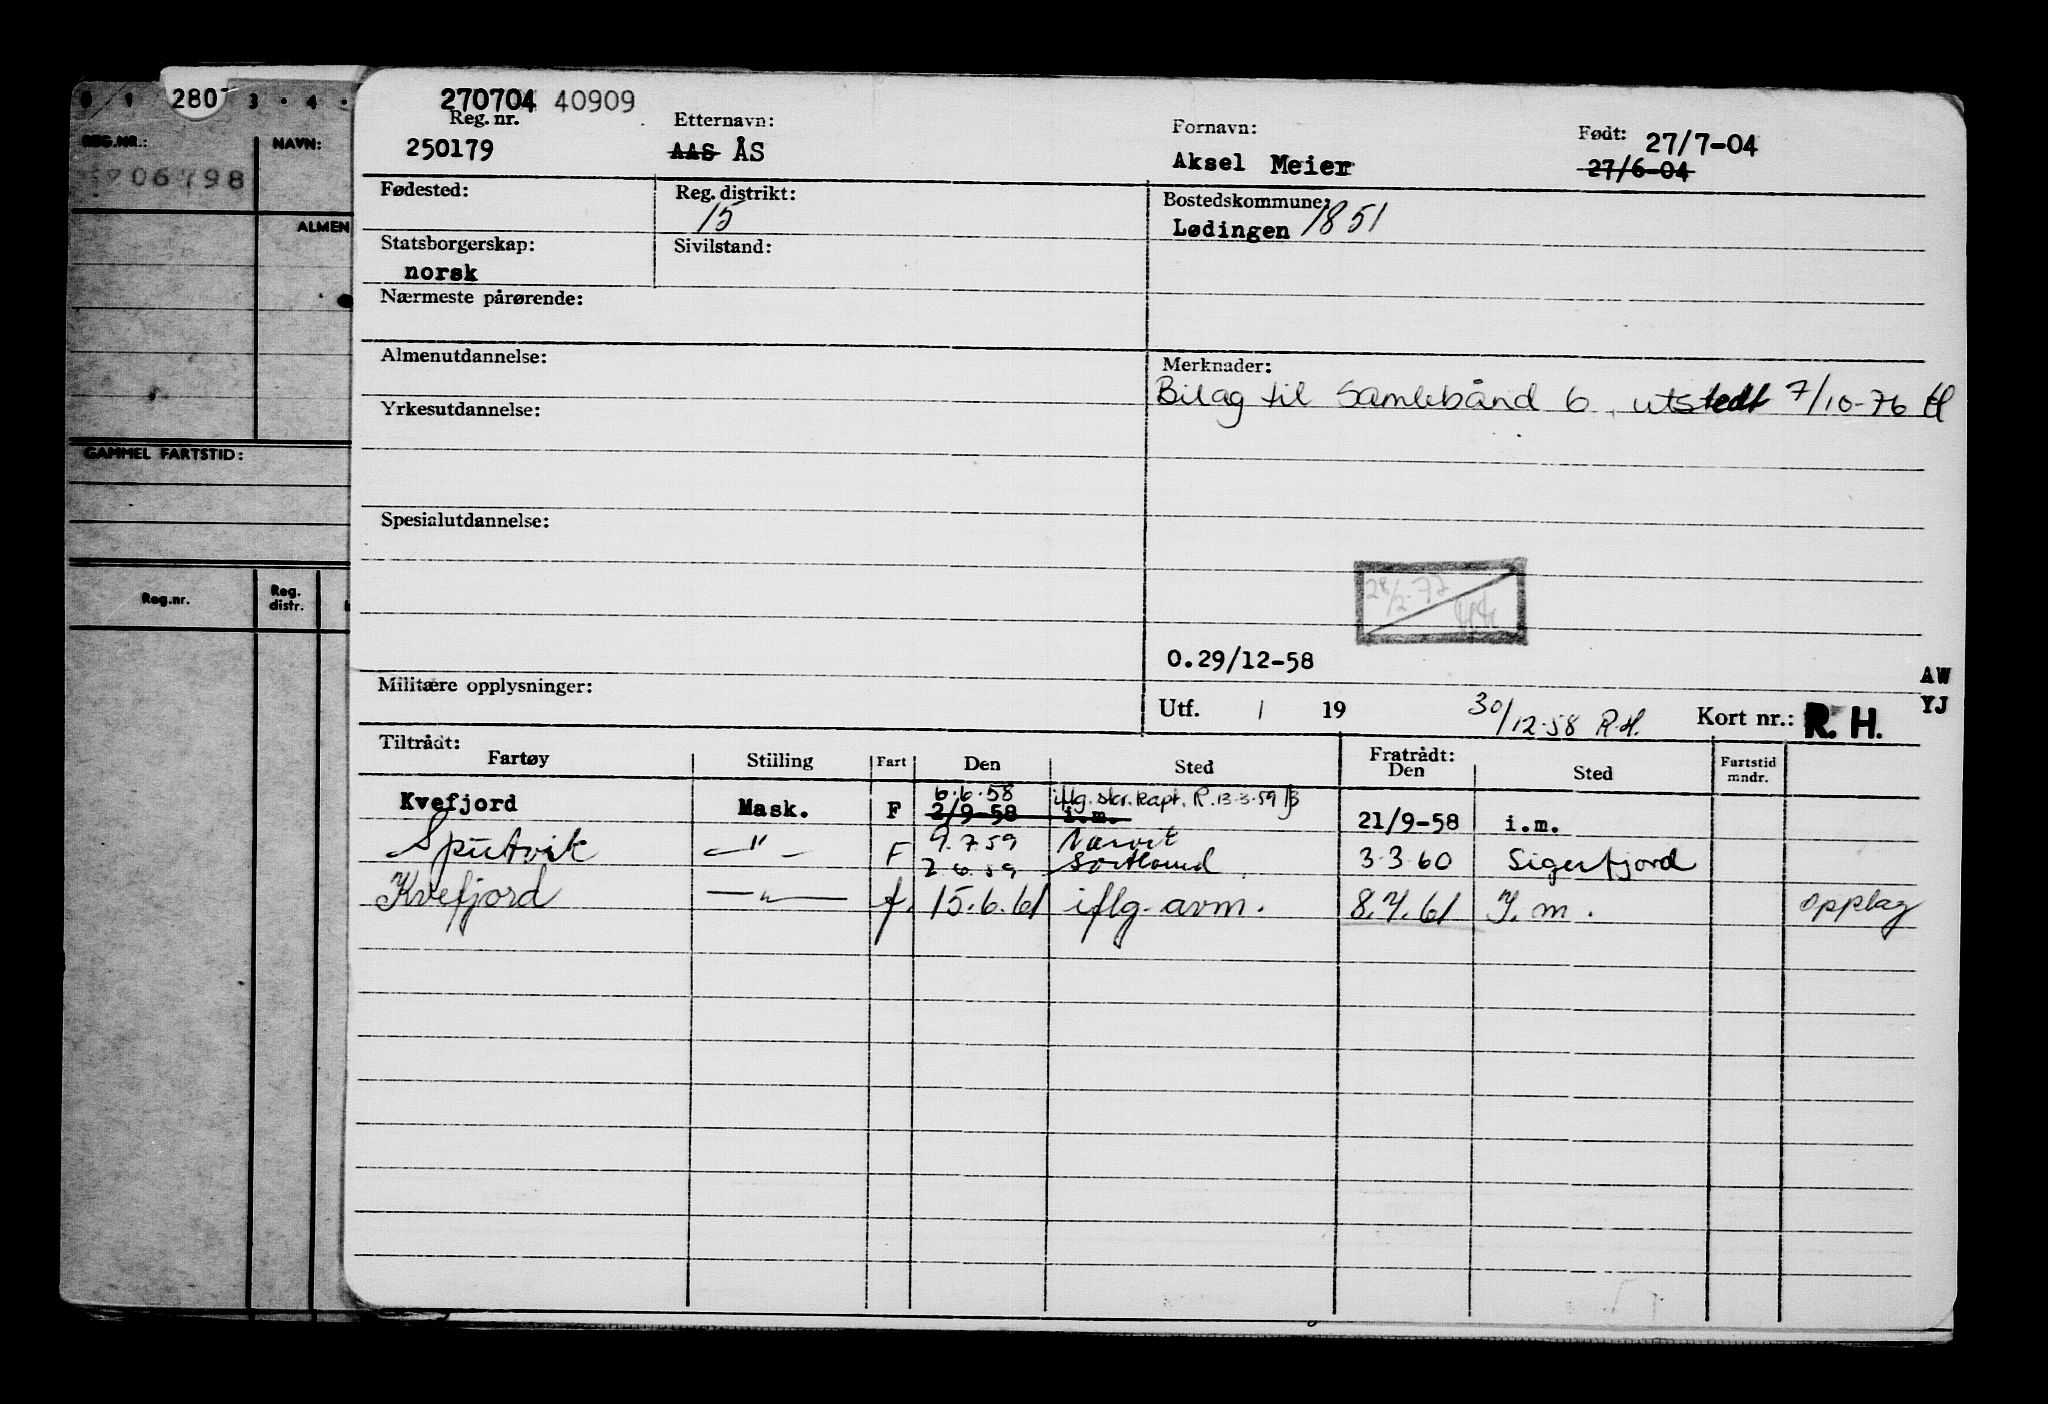 280 3 · 4 ·
REG.NR.: NAVN:
06798
ALMEN
GAMMEL FARTSTID:
Reg.nr. Reg. distr.
270704 40909
Reg. nr. Etternavn: Fornavn: Født: 27/7-04
250179 AAS ÅS Aksel Meier 27/6-04
Fødested: Reg. distrikt: Bostedskommune:
15 Lødingen 1851
Statsborgerskap: Sivilstand:
norsk
Nærmeste pårørende:
Almenutdannelse: Merknader:
Bilag til Samlebånd 6, utstedt 7/10-76
Yrkesutdannelse:
Spesialutdannelse:
28/2-77
O.29/12-58
AW
Militære opplysninger: Utf. / 19 30/12-58 R.H. Kort nr.: R. H. YJ
Tiltrådt: Fratrådt:
Fartøy Stilling Fart Den Sted Den Sted Fartstid mndr.
6.6.58 iflg. skr. kapt. R. 13.3.59
Kvefjord Mask. F 2/9-58 i.m. 21/9-58 i.m.
9.7.59 Narvik
Sputvik — " — F 2.6.59 Sortland 3.3.60 Sigerfjord
Kvefjord — " — f. 15.6.61 iflg. avm. 8.7.61 I. m. opplag